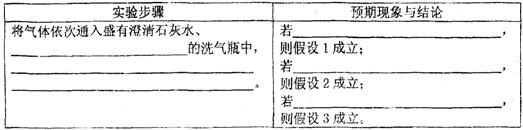 实验步骤
预期现象与结论
将气体依次通入盛有澄清石灰水、
的洗气瓶中,
。
若 ,
则假设 1 成立;
若 ,
则假设 2 成立;
若 ,
则假设 3 成立。